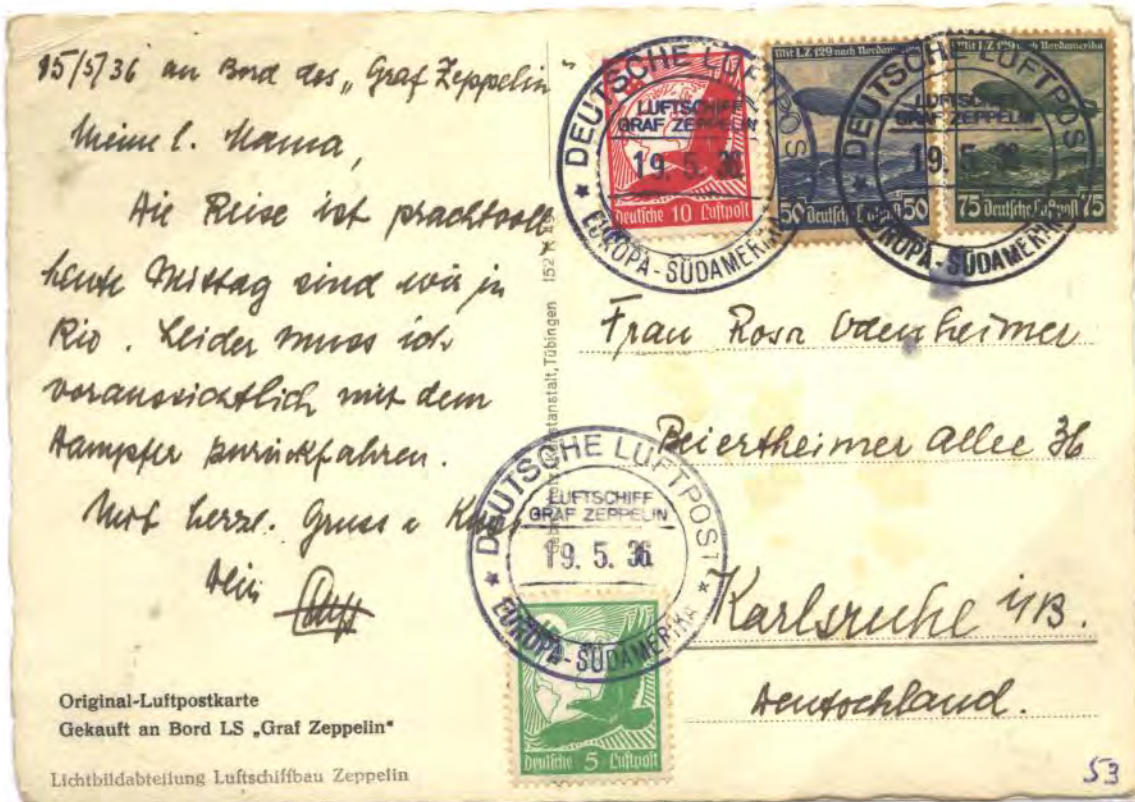 15/5/36 an Bord des „Graf Zeppelin“
Meine l. Mama,
Die Reise ist prachtvoll
heute Mittag sind wir in
Rio. Leider muss ich
voraussichtlich mit dem
Dampfer zurückfahren.
Mit herzl. Gruss u Kuss
Dein
Original-Luftpostkarte
Gekauft an Bord LS „Graf Zeppelin“
Lichtbildabteilung Luftschiffbau Zeppelin
Kunstanstalt, Tübingen 152
Deutsche 10 Luftpost
Mit LZ 129 nach Nordamerika
50 Deutsche Luftpost 50
Mit LZ 129 nach Nordamerika
75 Deutsche Luftpost 75
DEUTSCHE LUFTPOST
LUFTSCHIFF
GRAF ZEPPELIN
19. 5. 36
EUROPA-SÜDAMERIKA
DEUTSCHE LUFTPOST
LUFTSCHIFF
GRAF ZEPPELIN
19. 5. 36
EUROPA-SÜDAMERIKA
Frau Rosa Odenheimer
Beiertheimer Allee 36
Karlsruhe i/B.
Deutschland.
DEUTSCHE LUFTPOST
LUFTSCHIFF
GRAF ZEPPELIN
19. 5. 36
EUROPA-SÜDAMERIKA
Deutsche 5 Luftpost
53